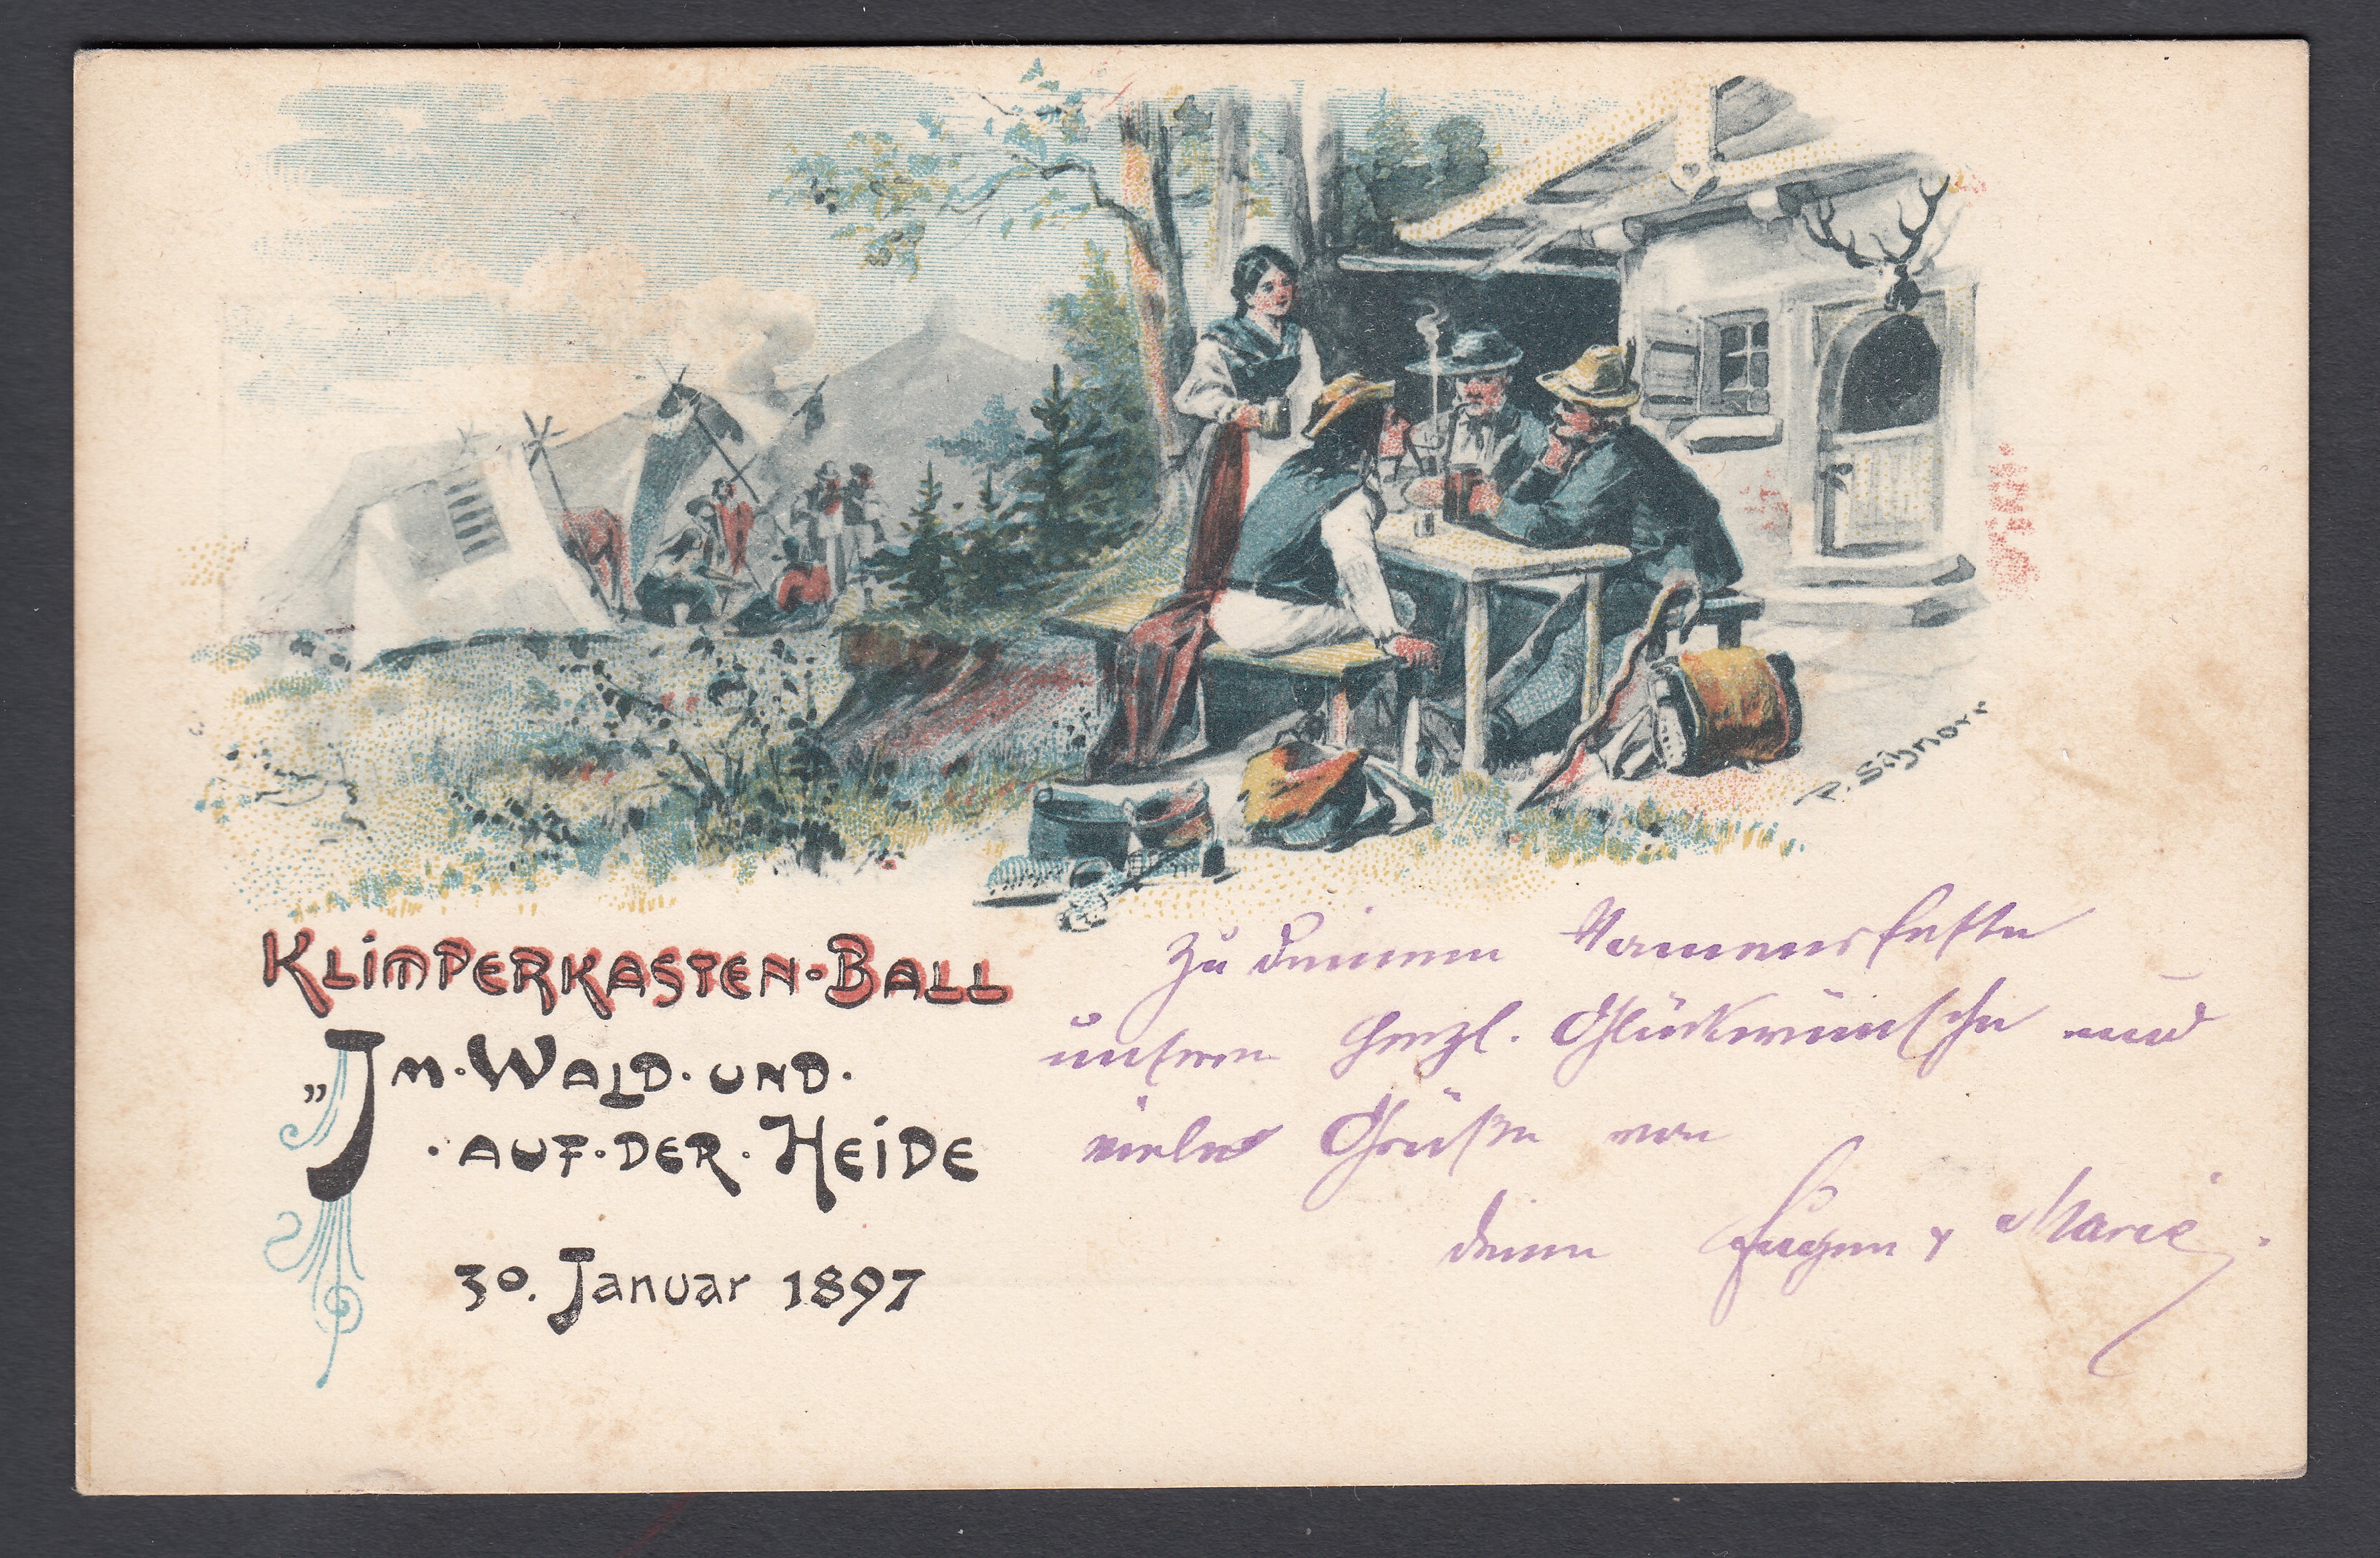 R. Schnorr
KLIMPERKASTEN·BALL
„IM·WALD·UND·
·AUF·DER·HEIDE
30. Januar 1897
Zu Deinem Namensfeste
unsere herzl. Glückwünsche und
viele Grüße von
deinen Eugen & Marie